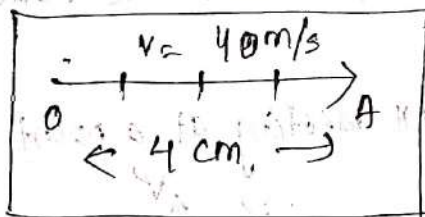 v= 40m/s
O A
4 cm.